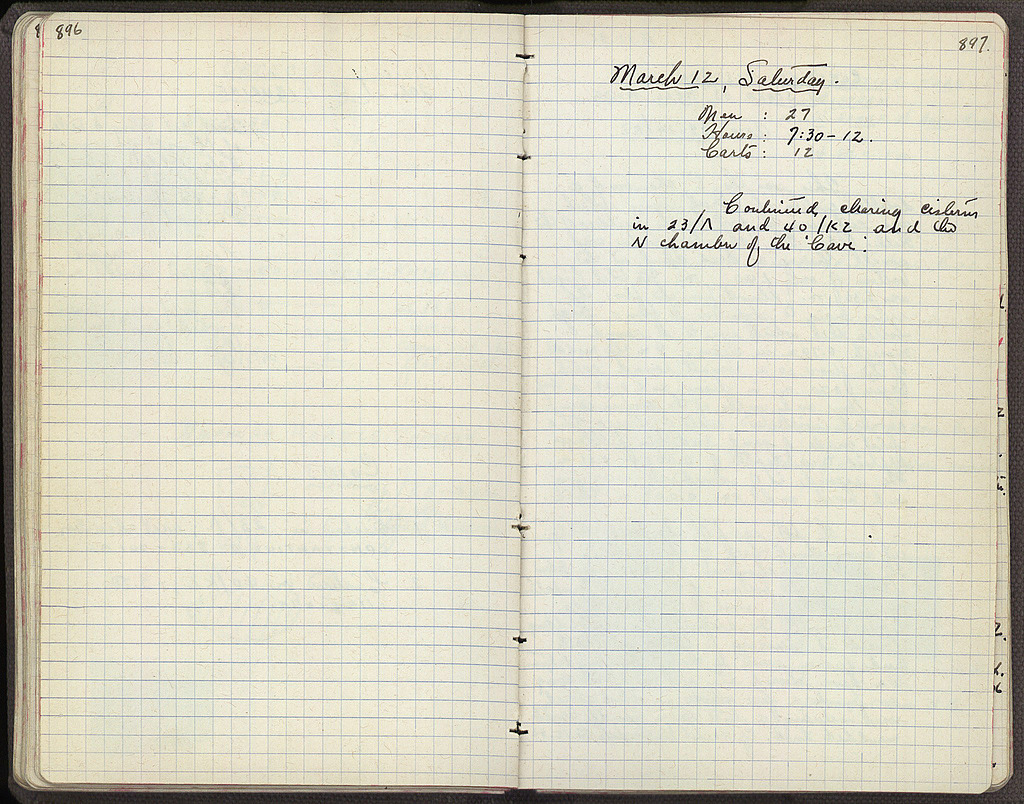 896
897.
March 12, Saturday.
Men : 27
Hours : 7:30 - 12.
Carts : 12
Continued clearing cisterns
in 23/Λ and 40/ΚΖ and the
N chamber of the 'Cave'.